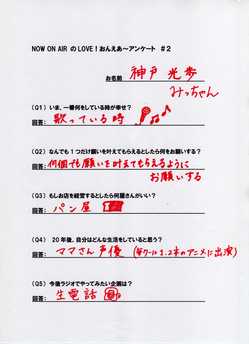 NOW ON AIR のLOVE!おんえあ~アンケート #2
お名前 神戸 光歩
みっちゃん
(Q1) いま、一番何をしている時が幸せ?
回答: 歌っている時
(Q2) なんでも1つだけ願いを叶えてもらえるとしたら何をお願いする?
回答: 何個でも願いを叶えてもらえるように
お願いする
(Q3) もしお店を経営するとしたら何屋さんがいい?
回答: パン屋
(Q4) 20年後、自分はどんな生活をしていると思う?
回答: ママさん声優 (毎クール1、2本のアニメに出演)
(Q5) 今後ラジオでやってみたい企画は?
回答: 生電話